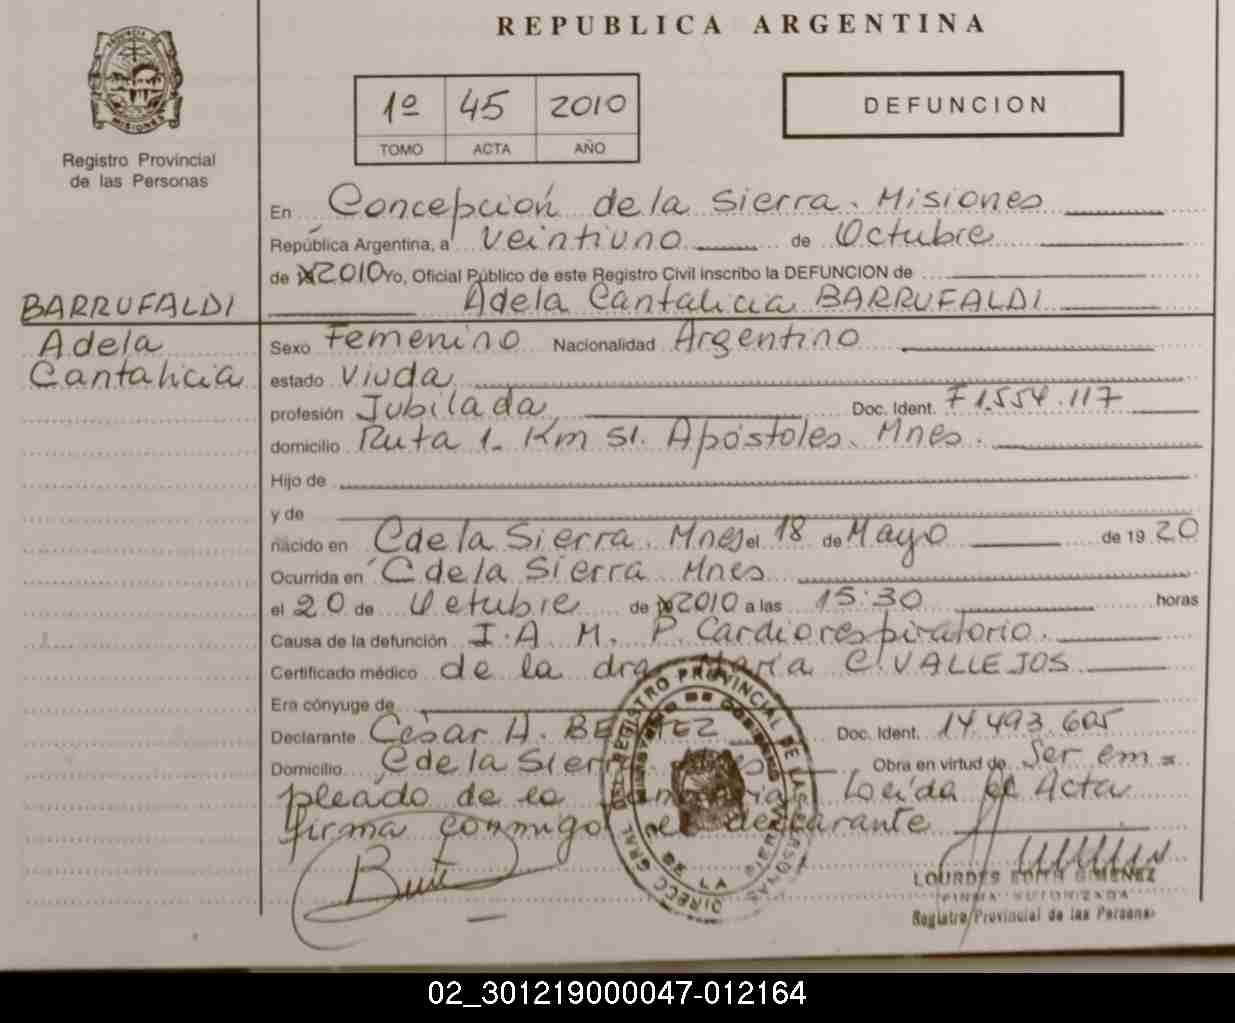 REPUBLICA ARGENTINA
PROVINCIA DE MISIONES
Registro Provincial
de las Personas
1º 45 2010
TOMO ACTA AÑO
DEFUNCION
En Concepción de la Sierra. Misiones
República Argentina, a veintiuno de Octubre
de 2010 Yo, Oficial Público de este Registro Civil inscribo la DEFUNCION de
Adela Cantalicia BARRUFALDI
BARRUFALDI
Adela
Cantalicia
Sexo Femenino Nacionalidad Argentino
estado Viuda
profesión Jubilada Doc. Ident. F 1.554.117
domicilio Ruta 1. Km 51. Apóstoles. Mnes.
Hijo de
y de
nacido en C de la Sierra. Mnes el 18 de Mayo de 19 20
Ocurrida en C de la Sierra Mnes
el 20 de Octubre de 2010 a las 15:30 horas
Causa de la defunción I. A. M. P. Cardiorespiratorio.
Certificado médico de la dra María C. VALLEJOS
Era cónyuge de
Declarante César A. BENITEZ Doc. Ident. 14.493.605
Domicilio C de la Sierra Mnes Obra en virtud de Ser em=
pleado de la funeraria Leída el Acta
firma conmigo el declarante
DIRECC GRAL DEL REGISTRO PROVINCIAL DE LAS PERSONAS
LOURDES EDITH GIMENEZ
FIRMA AUTORIZADA
Registro Provincial de las Personas
02_301219000047-012164